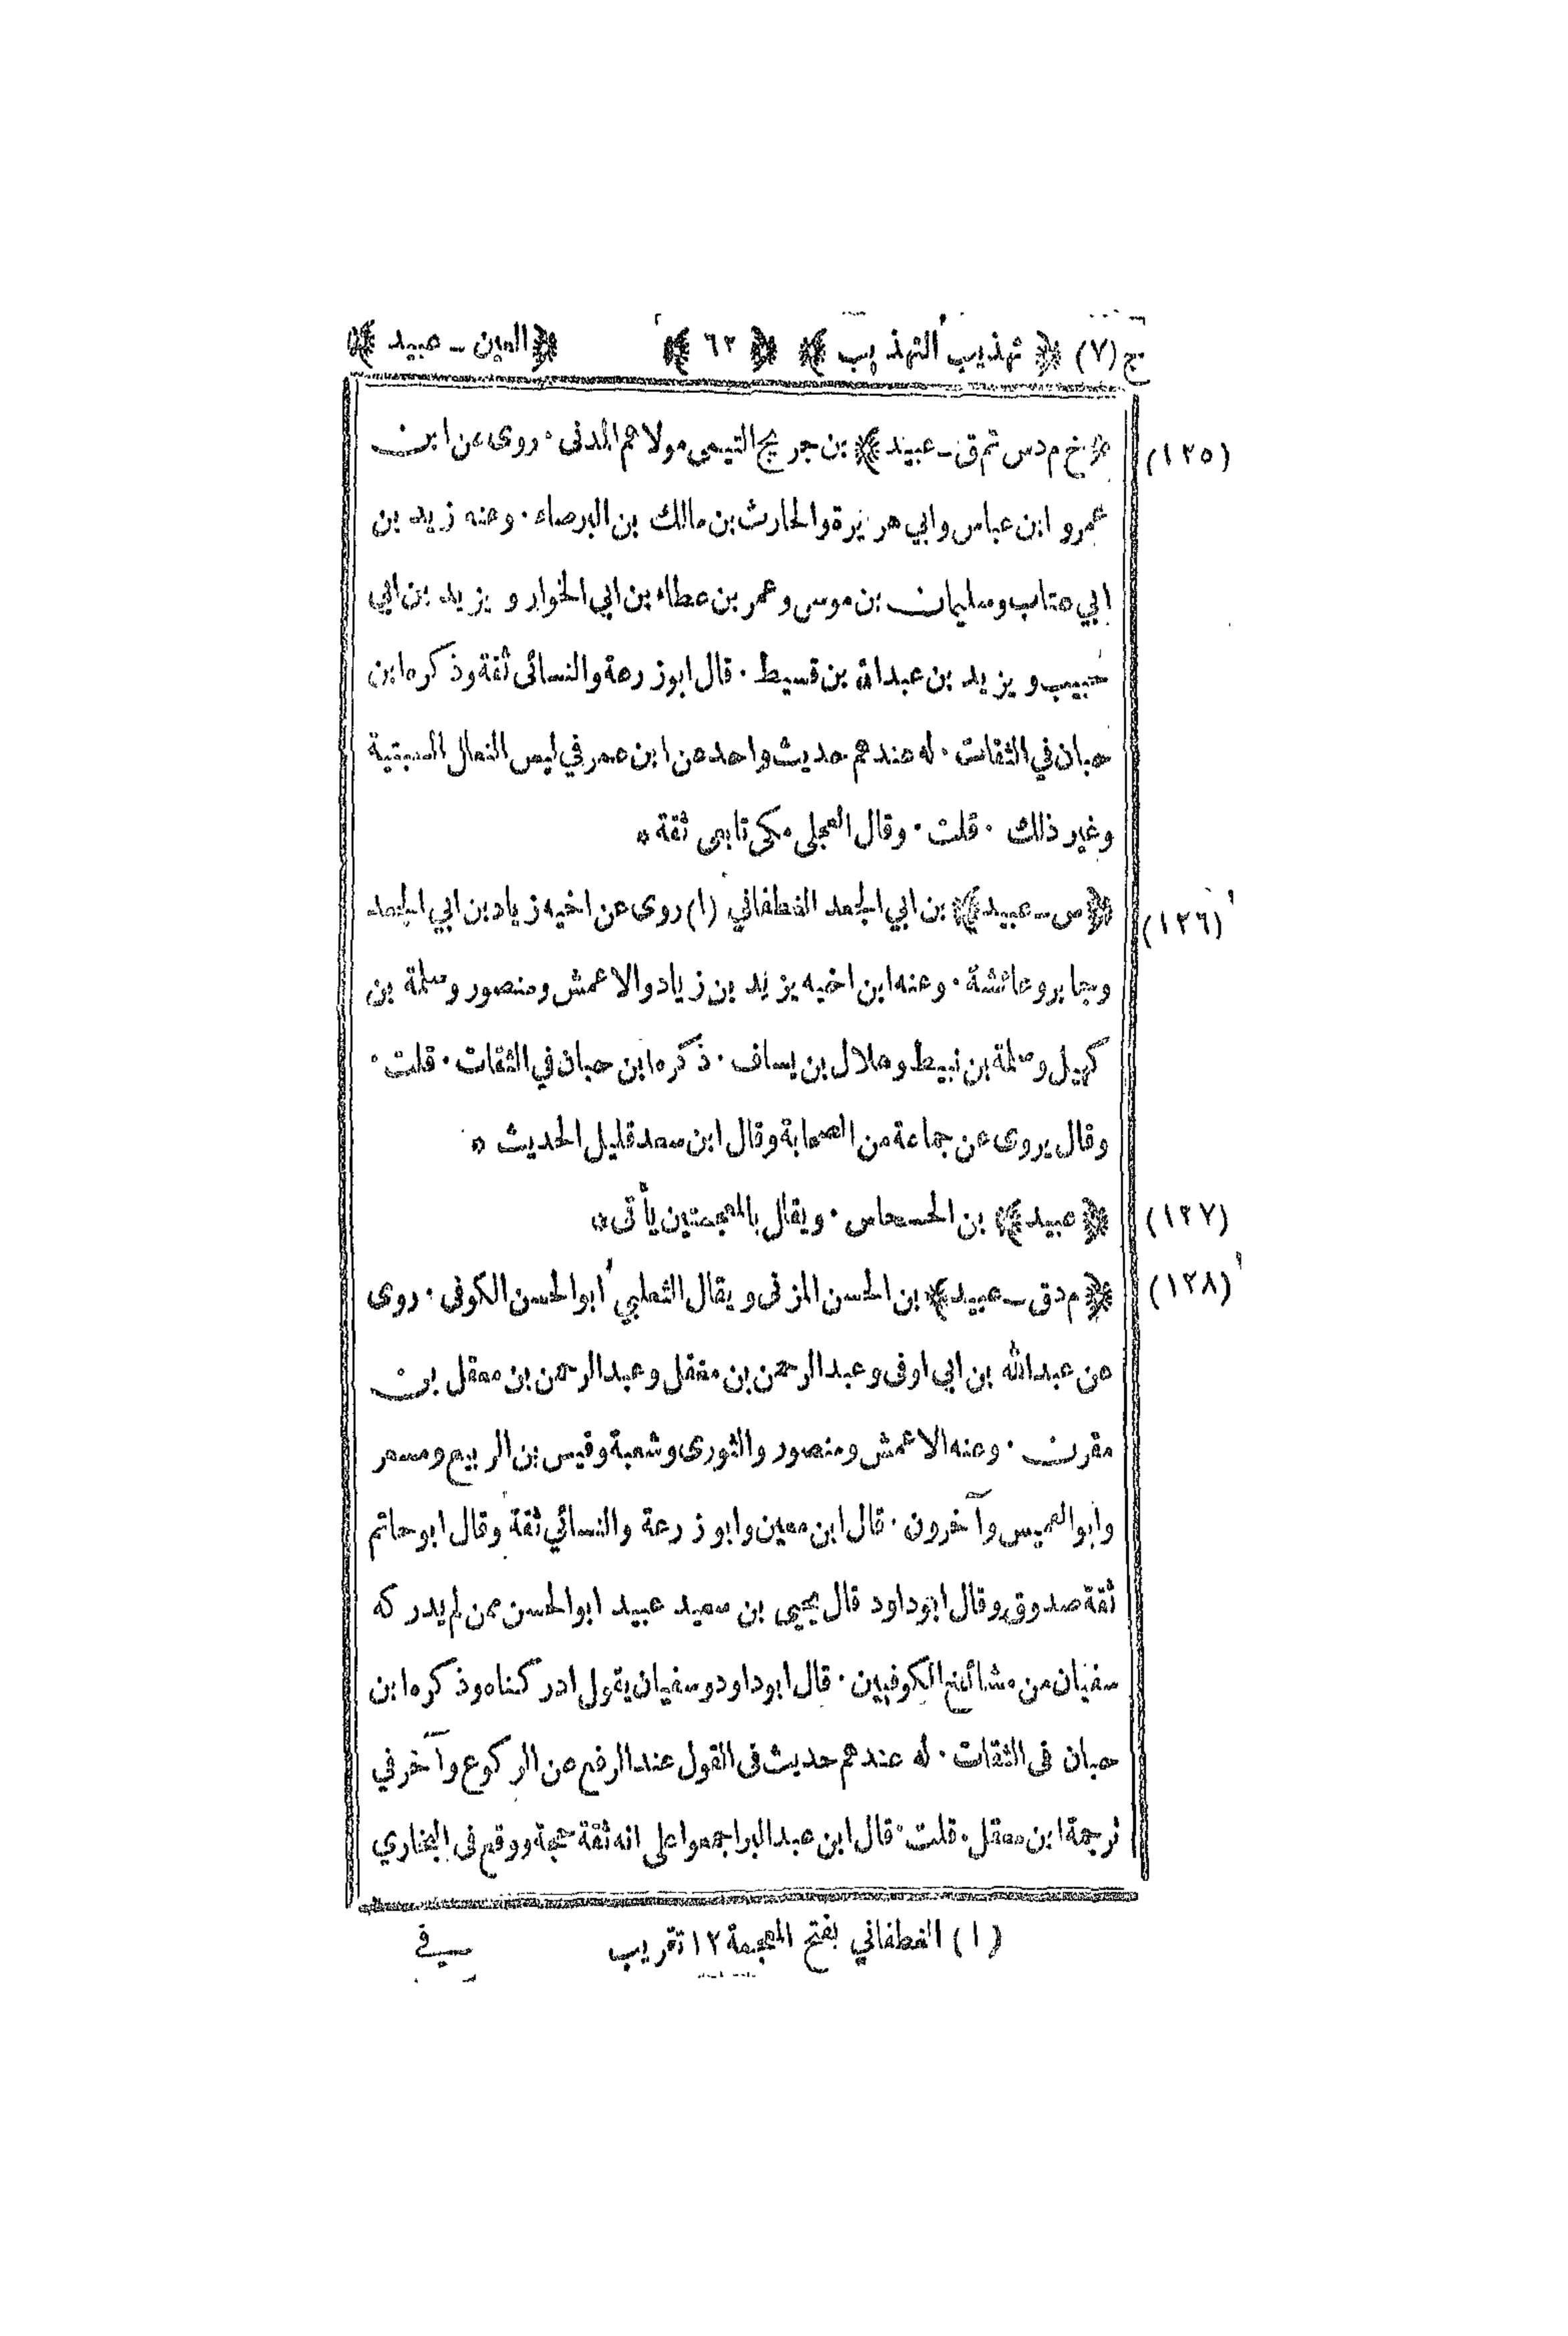 ج (٧) ﴿ تهذيب التهذيب ﴾ ﴿ ٦٢ ﴾ ﴿ العين ـ عبيد ﴾
(١٢٥) ﴿ خ م د س تم ق ـ عبيد ﴾ بن جريج التيمى مولاهم المدنى ٠ روى عن ابن
عمرو ابن عباس وابي هريرة والحارث بن مالك بن البرصاء ٠ وعنه زيد بن
ابي عتاب وسليمان بن موسى وعمر بن عطاء بن ابي الخوار ويزيد بن ابي
حبيب ويزيد بن عبدالله بن قسيط ٠ قال ابوزرعة والنسائى ثقة وذكره ابن
حبان في الثقات ٠ له عندهم حديث واحد عن ابن عمر في لبس النعال السبتية
وغير ذلك ٠ قلت ٠ وقال العجلى مكى تابعى ثقة *
(١٢٦) ﴿ س ـ عبيد ﴾ بن ابي الجعد الغطفاني (١) روى عن اخيه زياد بن ابي الجعد
وجابر وعائشة ٠ وعنه ابن اخيه يزيد بن زياد والاعمش ومنصور وسلمة بن
كهيل وسلمة بن نبيط وهلال بن يساف ٠ ذكره ابن حبان في الثقات ٠ قلت ٠
وقال يروى عن جماعة من الصحابة وقال ابن سعد قليل الحديث *
(١٢٧) ﴿ عبيد ﴾ بن الحسحاس ٠ ويقال بالمعجمتين يأتى *
(١٢٨) ﴿ م د ق ـ عبيد ﴾ بن الحسن المزنى ويقال الثعلبي ابوالحسن الكوفى ٠ روى
عن عبدالله بن ابي اوفى وعبدالرحمن بن مغفل وعبدالرحمن بن معقل بن
مقرن ٠ وعنه الاعمش ومنصور والثورى وشعبة وقيس بن الربيع ومسعر
وابوالعميس وآخرون ٠ قال ابن معين وابوزرعة والنسائي ثقة وقال ابوحاتم
ثقة صدوق وقال ابوداود قال يحيى بن سعيد عبيد ابوالحسن ممن لم يدركه
سفيان من مشائخ الكوفيين ٠ قال ابوداود وسفيان يقول ادركناه وذكره ابن
حبان فى الثقات ٠ له عندهم حديث فى القول عند الرفع من الركوع وآخر في
ترجمة ابن معقل ٠ قلت ٠ قال ابن عبدالبر اجمعوا على انه ثقة حجة ووقع فى البخاري
(١) الغطفاني بفتح المعجمة ١٢ تقريب
في